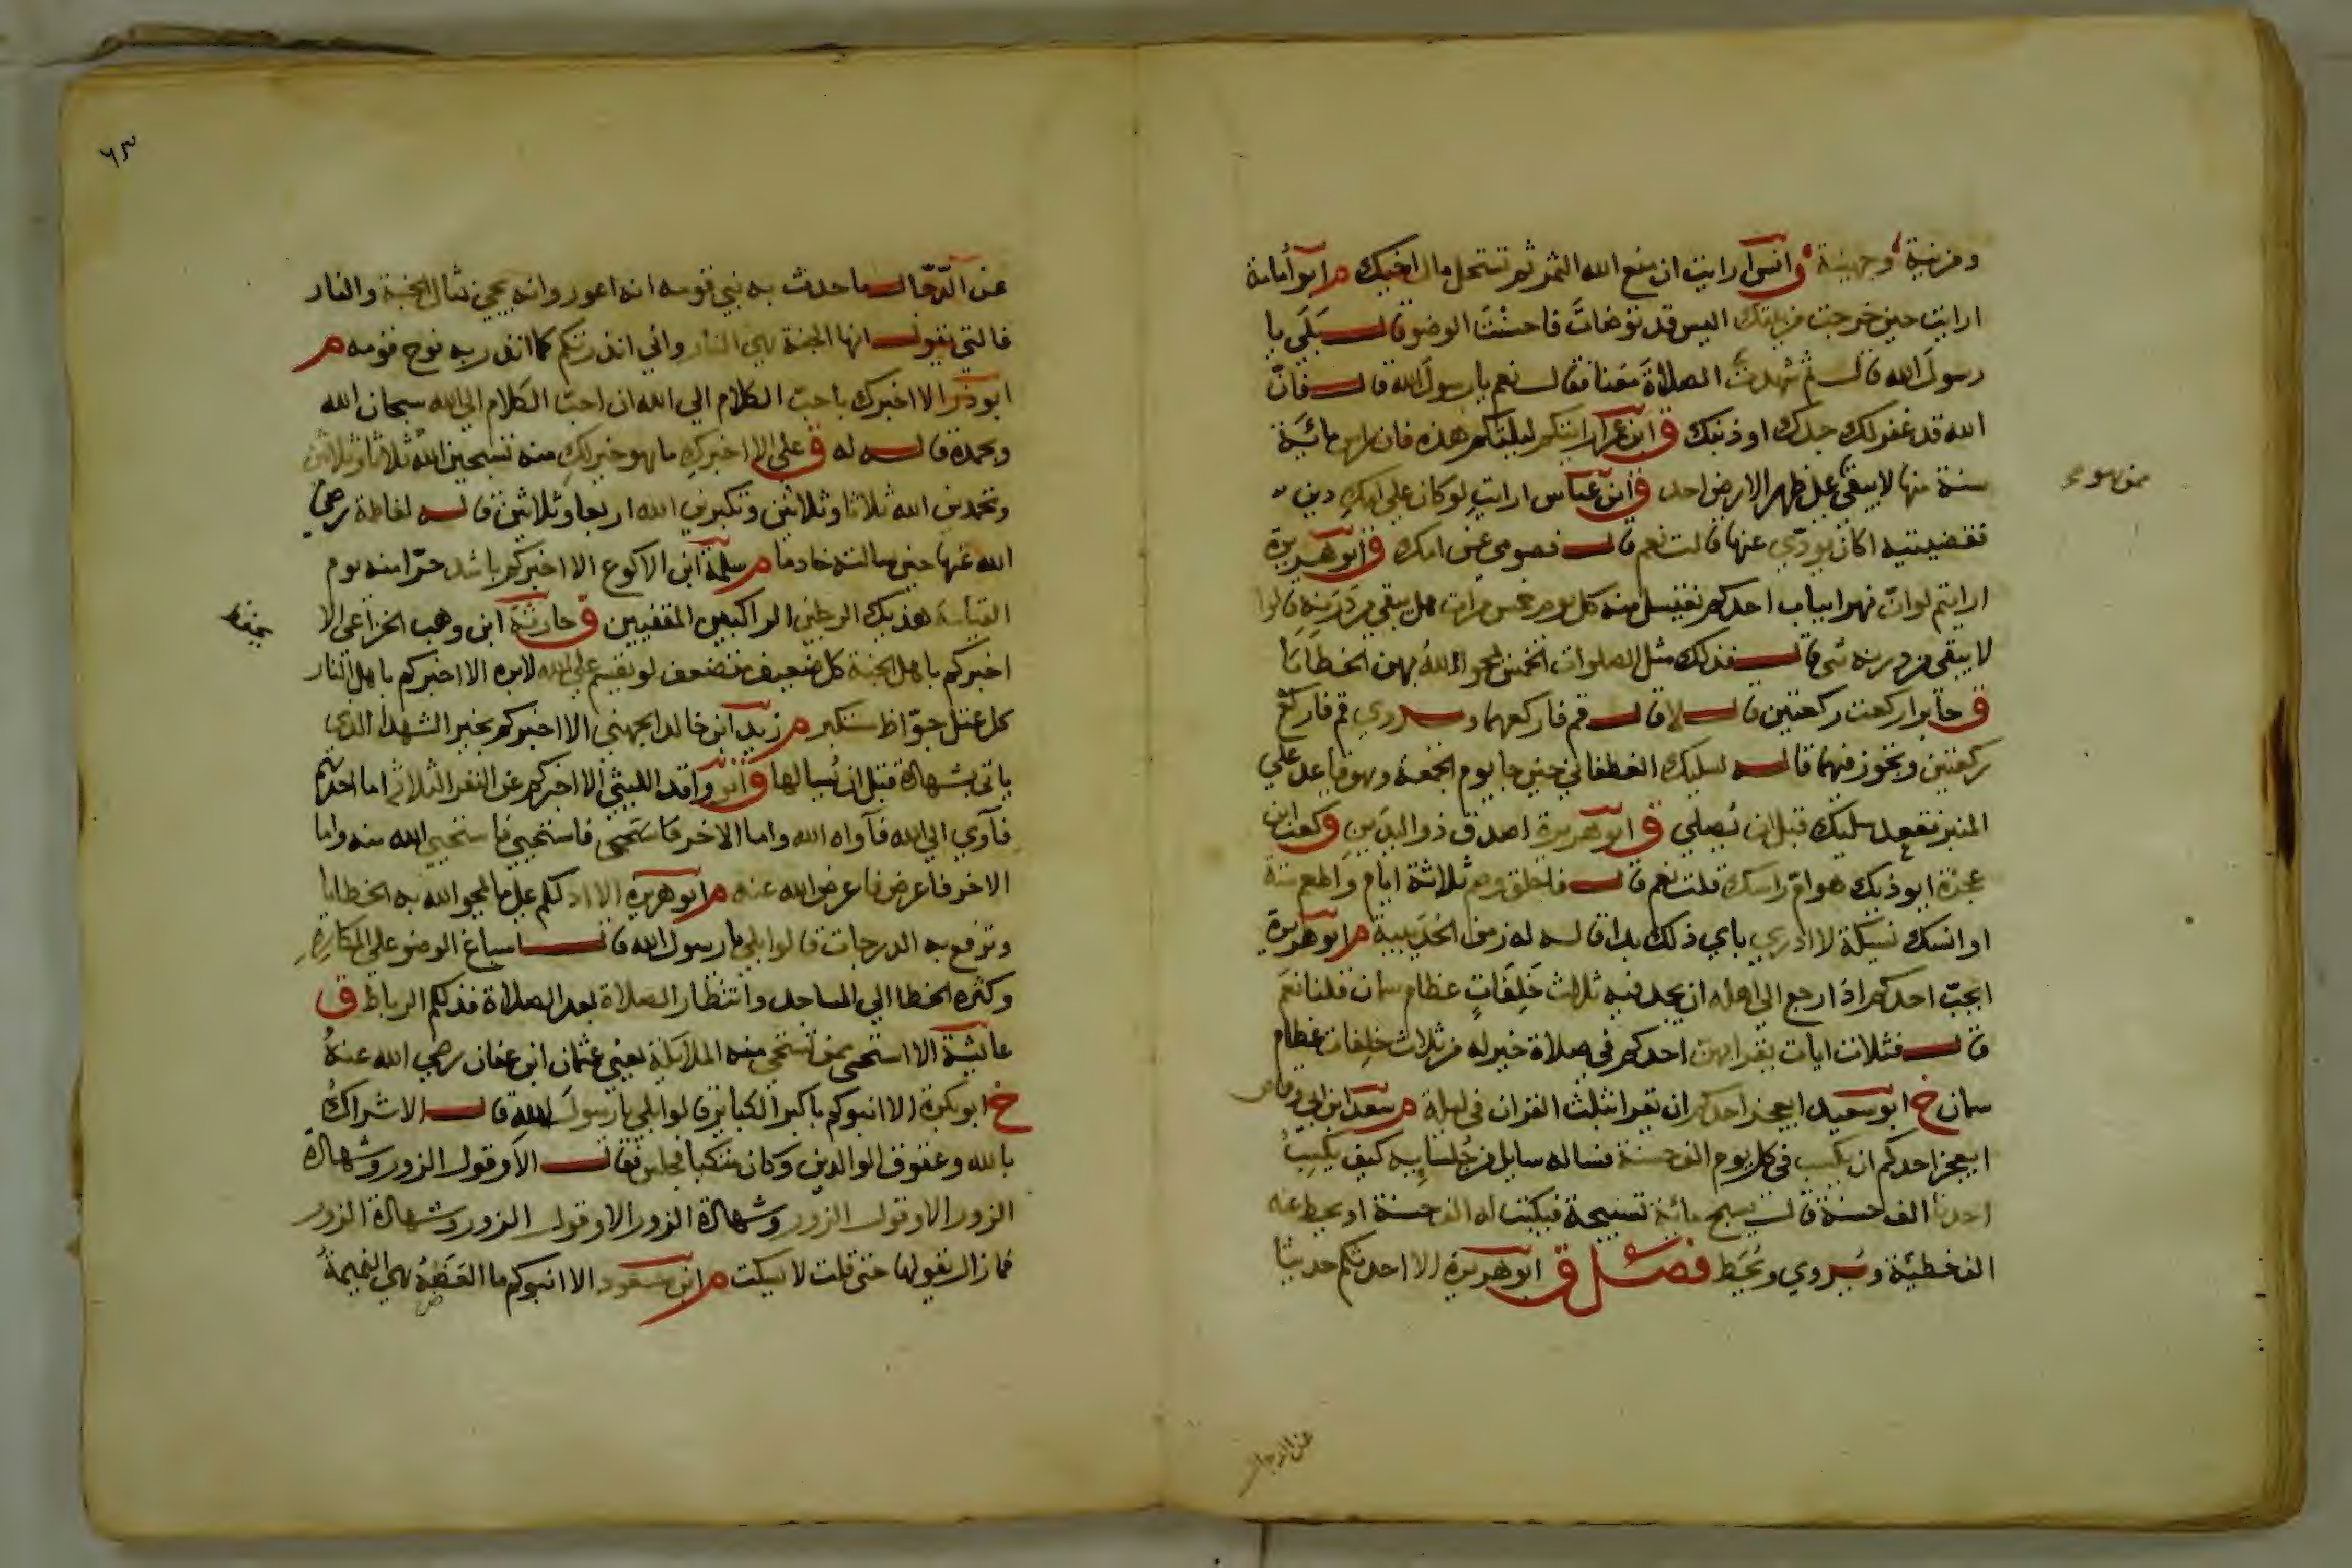 ومزينة وجهينة ق انس ارايت ان منع الله الثمر ثم تستحل مال اخيك م ابو أمامة
ارايت حين خرجت من بيتك اليس قد توضات فاحسنت الوضو قال بلى يا
رسول الله قال ثم شهدت الصلاة معنا فقال نعم يا رسول الله قال فان
الله قد غفر لك حدك او ذنبك ق ابن عمر ارايتكم ليلتكم هذه فان راس مائة
سنة منها لا يبقى على ظهر الارض احد ق ابن عباس ارايت لو كان على امك دين
فقضيتيه اكان يودي عنها قالت نعم قال فصومي عن امك ق ابو هريرة
ارايتم لو ان نهرا بباب احدكم تغتسل منه كل يوم خمس مرات هل يبقى من درنه قالوا
لا يبقى من درنه شي قال فذلك مثل الصلوات الخمس يمحو الله بهن الخطايا
ق جابر اركعت ركعتين قال لا قال قم فاركعهما ويروي قم فاركع
ركعتين وتجوز فيهما قاله لسليك الغطفاني حين جا يوم الجمعة وهو قاعد على
المنبر فقعد سليك قبل ان يصلي ق ابو هريرة اصدق ذو اليدين ق كعب ابن
عجرة ايوذيك هوام راسك قلت نعم قال فاحلق وصم ثلاثة ايام واطعم ستة
او انسك نسيكة لا ادري باي ذلك بدا قاله له زمن الحديبية م ابو هريرة
ايحب احدكم اذا رجع الى اهله ان يجد فيه ثلاث خلفات عظام سمان قلنا نعم
قال فثلاث ايات يقرا بهن احدكم في صلاة خير له من ثلاث خلفات عظام
سمان خ ابو سعيد ايعجز احدكم ان يقرا ثلث القران في ليلة م سعد ابن ابي وقاص
ايعجز احدكم ان يكسب في كل يوم الف حسنة فساله سايل من جلسايه كيف يكسب
احدنا الف حسنة قال يسبح مائة تسبيحة فيكتب له الف حسنة او يحط عنه
الف خطيئة ويروي ويحط فصل ق ابو هريرة الا احدثكم حديثا
عن الدجال
٦٣
عن الدجال ما حدث به نبي قومه انه اعور وانه يجي بمثال الجنة والنار
فالتي يقول انها الجنة هي النار واني انذرتكم كما انذر به نوح قومه م
ابو ذر الا اخبرك باحب الكلام الي الله ان احب الكلام الى الله سبحان الله
وبحمده قاله له ق علي الا اخبرك ما هو خير لك منه تسبحين الله ثلاثا وثلاثين
وتحمدين الله ثلاثا وثلاثين وتكبرين الله اربعا وثلاثين قاله لفاطمة رضي
الله عنها حين سالته خادما م سلمة ابن الاكوع الا اخبركم باشد حرا منه يوم
القيامة هذينك الرجلين الراكبين المقفيين ق حارثة ابن وهب الخزاعي الا
اخبركم باهل الجنة كل ضعيف متضعف لو يقسم على الله لابره الا اخبركم باهل النار
كل عتل جواظ مستكبر م زيد ابن خالد الجهني الا اخبركم بخير الشهدا الذي
ياتي بشهادة قبل ان يسالها ق ابو واقد الليثي الا اخبركم عن النفر الثلاثة اما احدهم
فآوي الى الله فآواه الله واما الاخر فاستحيى فاستحيي الله منه واما
الاخر فاعرض فاعرض الله عنه م ابو هريرة الا ادلكم على ما يمحو الله به الخطايا
وترفع به الدرجات قالوا بلي يا رسول الله قال اسباغ الوضو على المكاره
وكثرة الخطا الي المساجد وانتظار الصلاة بعد الصلاة فذلكم الرباط ق
عايشة الا استحي ممن تستحي منه الملايكة يعني عثمان ابن عفان رضي الله عنه
خ ابو بكرة الا انبوكم باكبر الكباير قالوا بلي يا رسول الله قال الاشراك
بالله وعقوق الوالدين وكان متكيا فجلس فقال الا وقول الزور وشهادة
الزور الا وقول الزور وشهادة الزور الا وقول الزور وشهادة الزور
فما زال يقولها حتى قلت لا يسكت م ابن مسعود الا انبوكم ما العضه هي النميمة